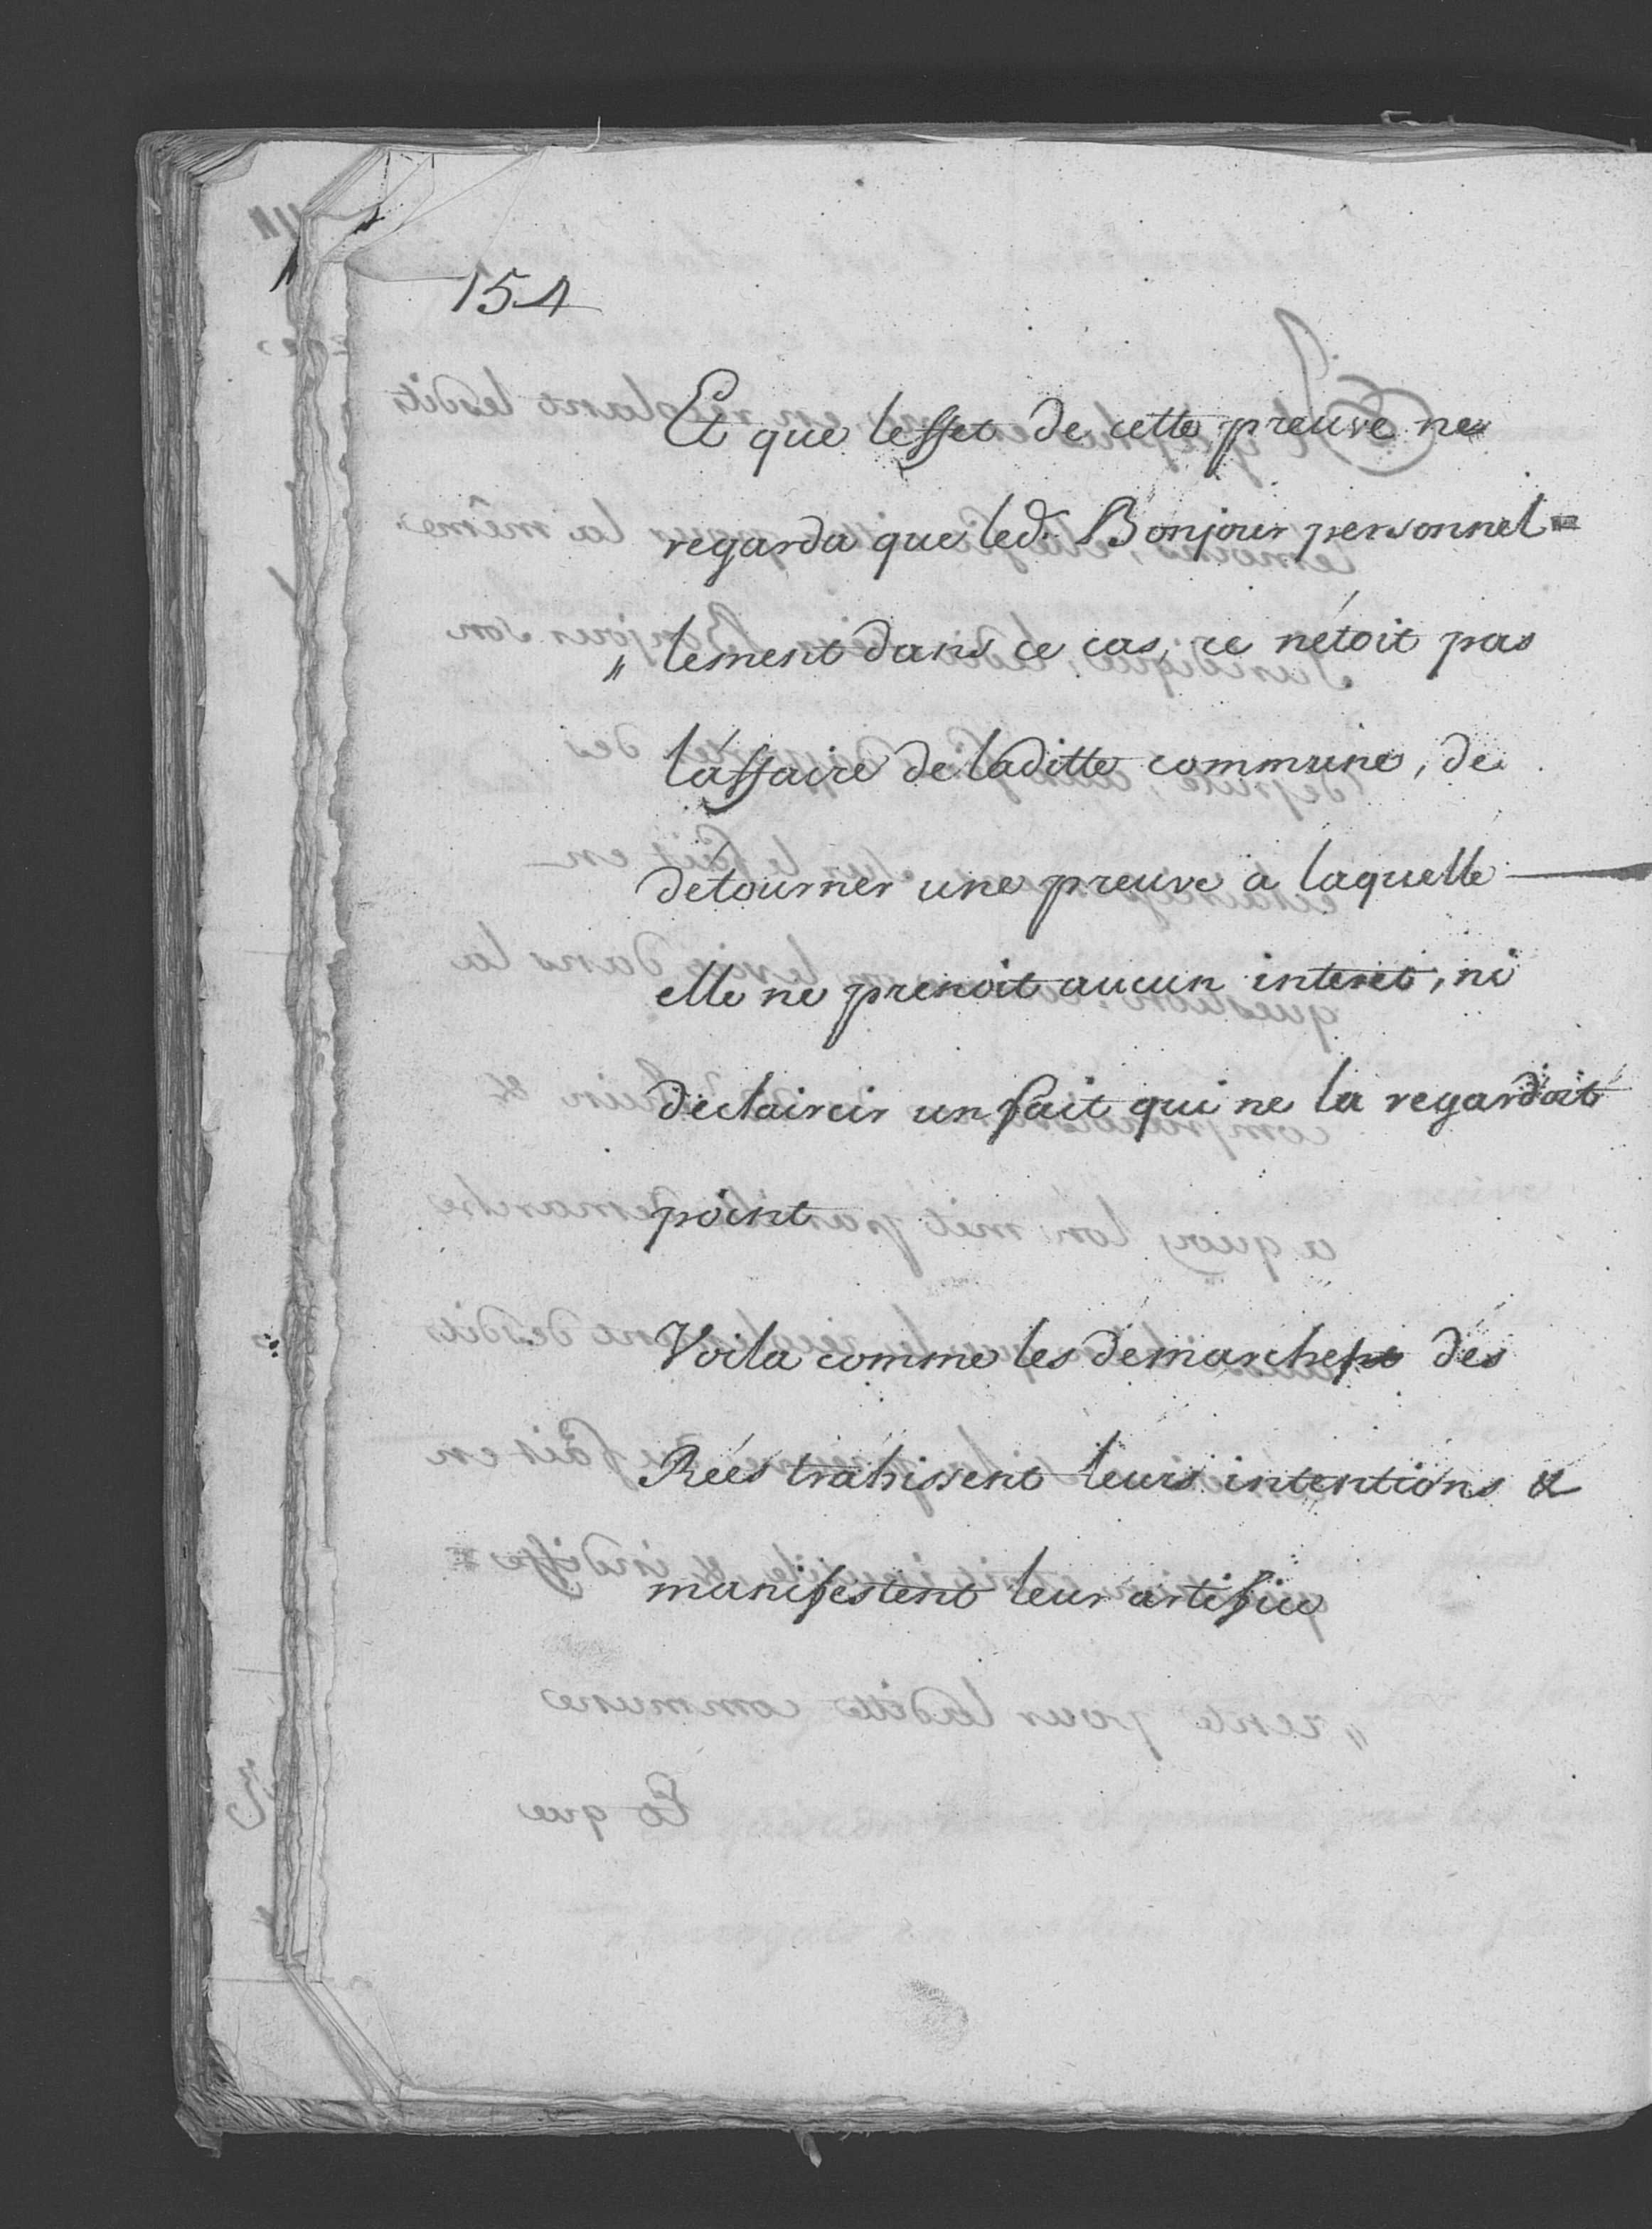 154
Et que leffet de cette preuve ne
regarda que led. Bonjour personnel=
„ lement dans ce cas, ce nétoit pas
láffaire de laditte commune, de
détourner une preuve a laquelle
elle ne prenoit aucun interet, ni
déclaircir un fait qui ne la regardoit
point
Voila comme les démarches dés
Rées trahissent leurs intentions &
manifestent leur artifice